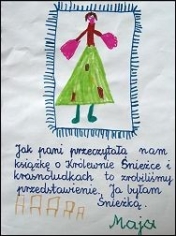 Jak pani przeczytała nam
książkę o Królewnie Śnieżce i
krasnoludkach to zrobiliśmy
przedstawienie. Ja byłam
Śnieżką.
Maja